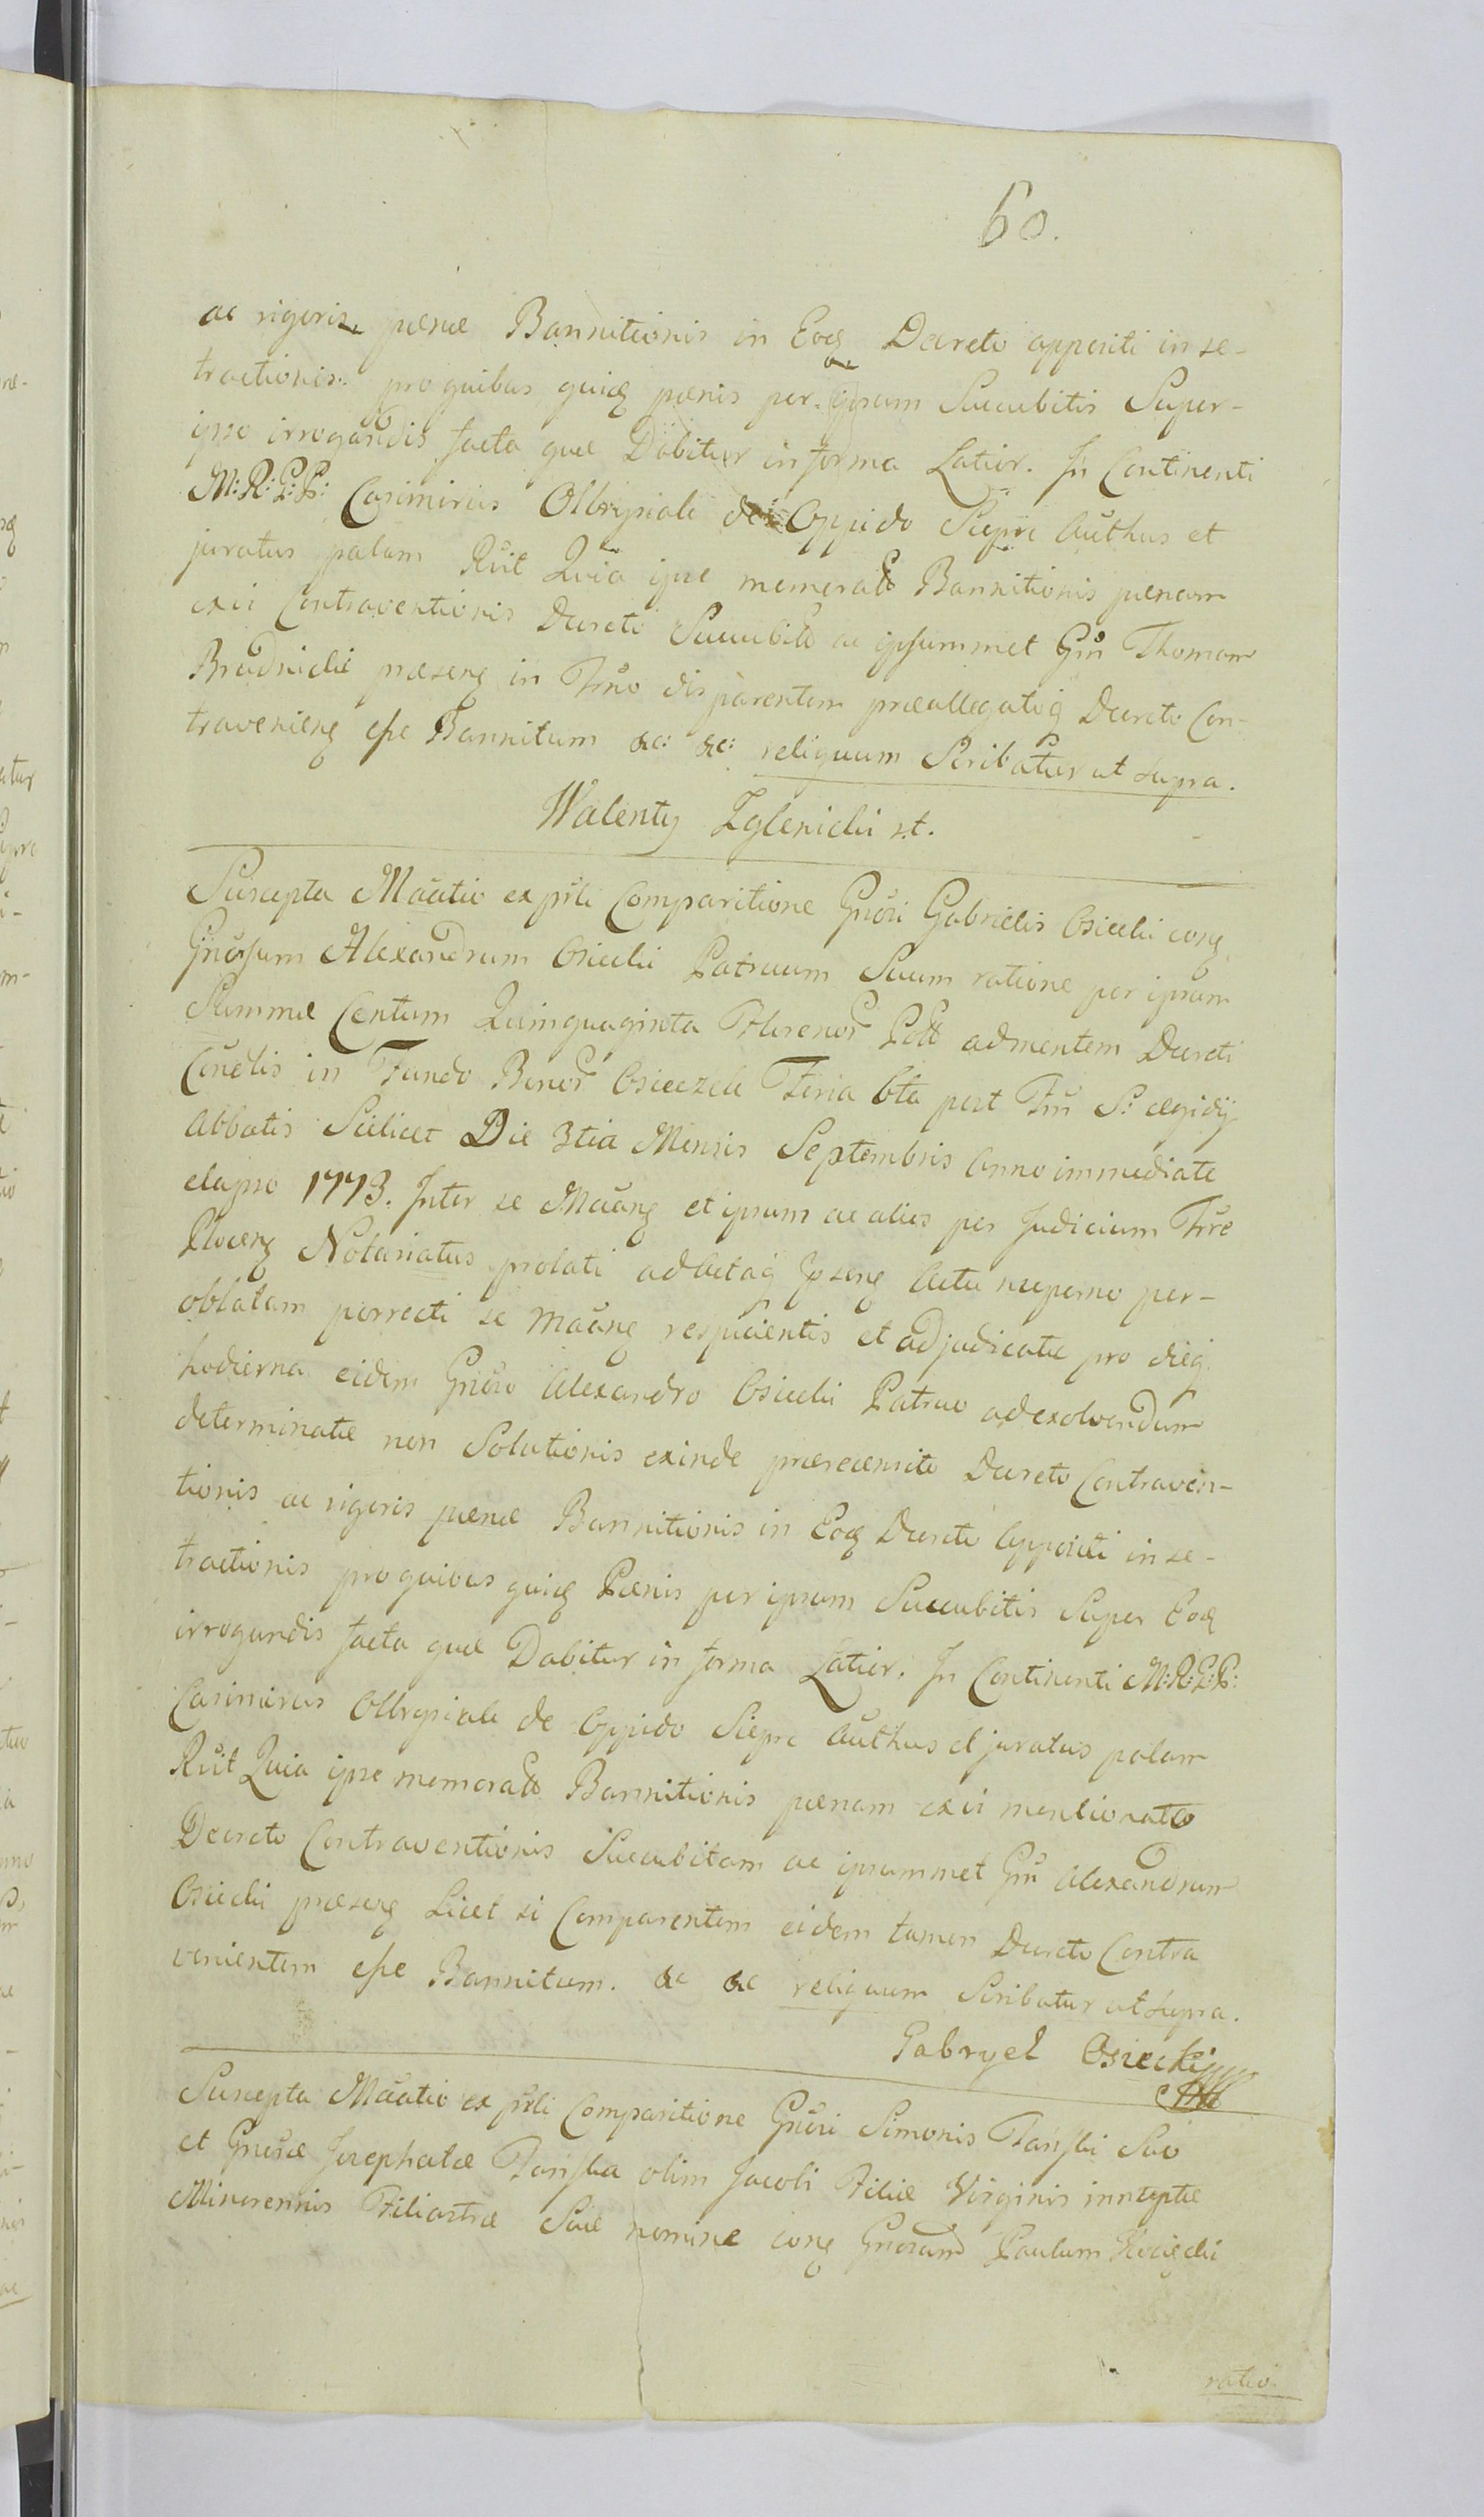 60.
ac rigoris pænæ Bannitionis in Eoq Decreto appositi in se-
tractionis pro quibus quiq pænis per ipsum Succubitis Super-
ipso irrogandis facta quæ Dabitur in forma Latior. In Continenti
M: R: G: P: Casimirus Olbrysiak de Oppido Siepre Authus et
juratus palam Rũit Quia ipse memoratt Bannitionis pænam
ex vi Contraventionis Decreti Succubitt ac ipsummet Gñ Thomam
Brudnicki præseng in Trno disparentem præallegatoq Decreto Con-
travenieng esse Bannitum &c: &c: reliquum Scribatur ut supra.
Walenty Zglenicki s.t.
Suscepta Mãatio ex psti Comparitione Gnõri Gabrielis Osiecki cong
Gnõrsum Alexandrum Osiecki Patruum Suum ratione per ipsum
Summæ Centum Quinquaginta Florenor Poll ad mentem Decreti
Condlis in Fundo Bonor Osieczek Feria 6ta post Fm S: ægidij
Abbatis Scilicet Die 3tia Mensis Septembris Anno immediate
elapso 1773. Inter se Mãang et ipsum ac alios per Judicium Trre
Ploceng Notariatus prolati ad Actaq pseng Actu nupemo per-
oblatam porrecti se Mãang respicientis et adjudicatæ pro dieq
hodierna eidem Gnõro Alexandro Osiecki Patruo ad exolvendum
determinatæ non Solutionis exinde prærecensito Decreto Contraven-
tionis ac rigoris pænæ Bannitionis in Eoq Decreto Appositi in se-
tractionis pro quibus quiq Pænis per ipsum Succubitis Super Eoq
irrogandis facta quæ Dabitur in forma Latior. In Continenti M: R: G: P:
Casimirus Olbrysiak de Oppido Siepre Authus et juratus palam
Rũit Quia ipse memoratt Bannitionis pænam ex vi mentionatto
Decreto Contraventionis Succubitam ac ipsummet Gñ Alexandrum
Osiecki præseng Licet si Comparentem eidem tamen Decreto Contra
venientem esse Bannitum. &c &c reliquum Scribatur ut supra.
Gabryel Osiecki
Suscepta Mãatio ex psti Comparitione Gnõri Simonis Fanski Suo
et Gnõsæ Josephatæ Fanska olim Jacobi Filiæ Virginis innuptæ
Minorennis Filiastræ Suæ nomine cong Gnõrum Paulum
ratio.